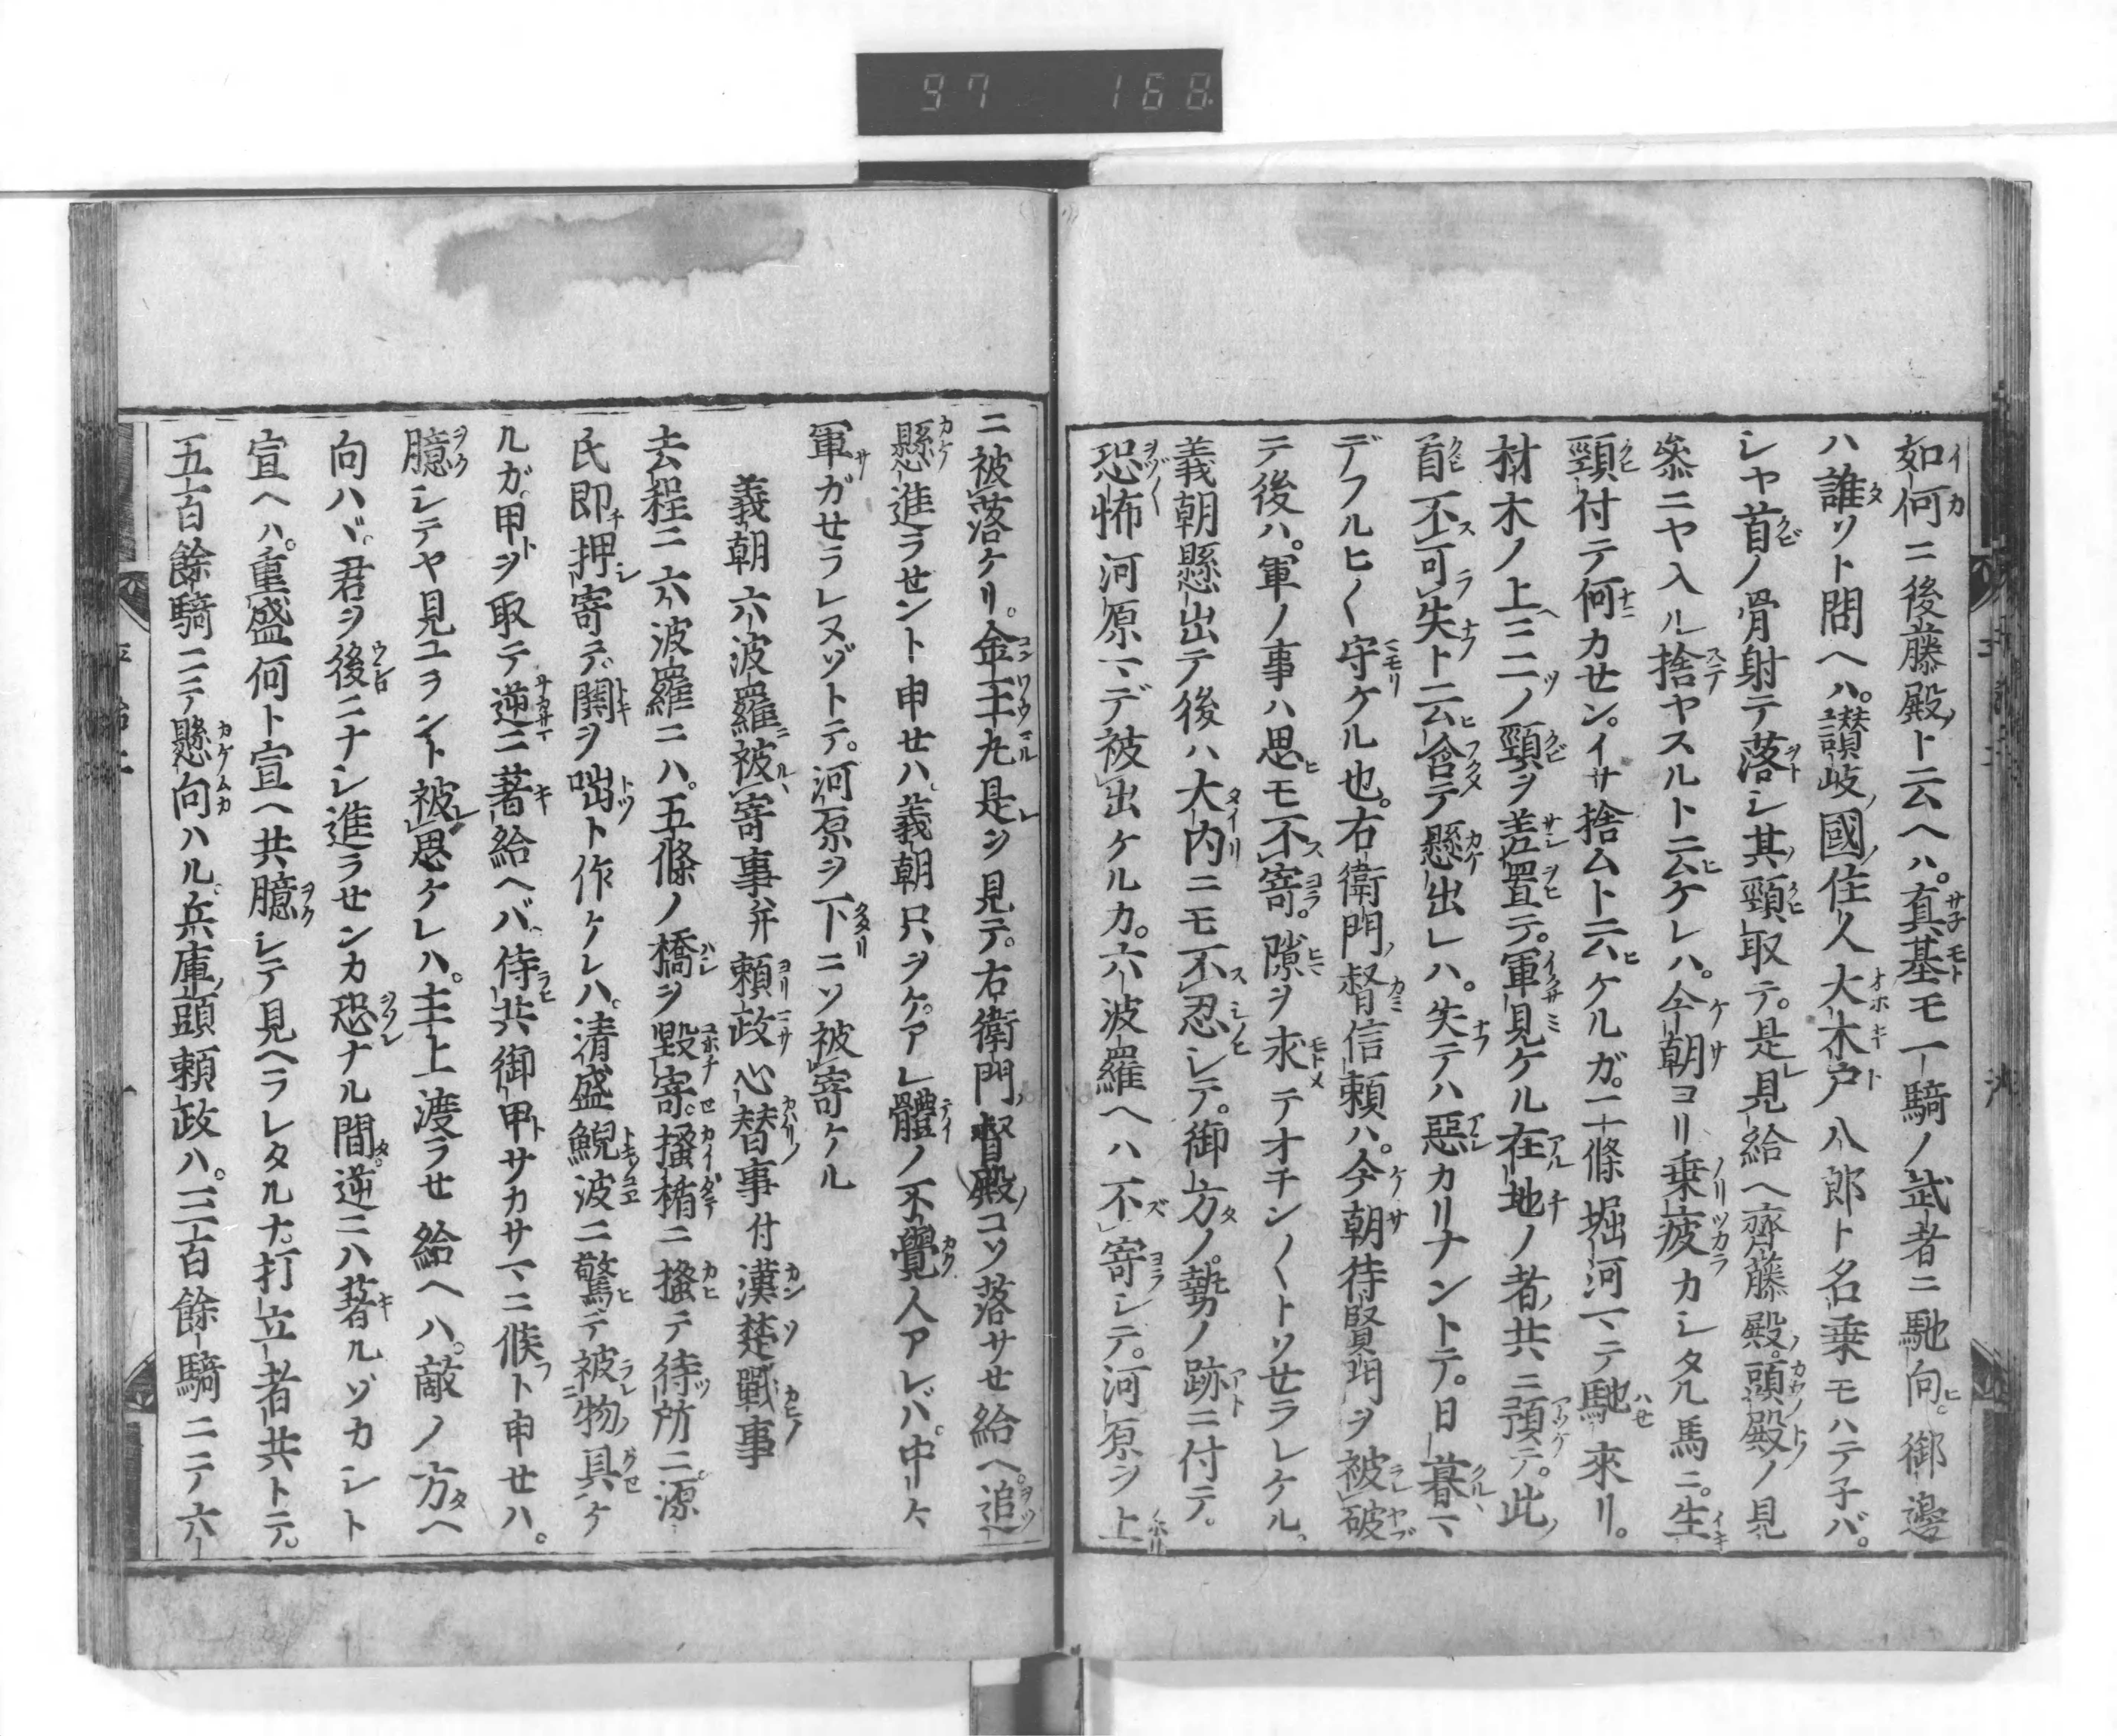 97 168
如何ニ後藤殿ト云ヘハ。真基モ一騎ノ武者ニ馳向。御邊
ハ誰ソト問ヘハ。讃岐國住人大木戸八郎ト名乗モハテ子バ。
シヤ首ノ骨射テ落シ其頸取テ。是見給ヘ齊藤殿。頭殿ノ見
參ニヤ入ル捨ヤスルト云ケレハ。今朝ヨリ乗疲カシタル馬ニ。生
頸付テ何カセン。イサ捨ムト云ケルガ。二條堀河マテ馳來リ。
材木ノ上ニ二ノ頸ヲ差置テ。軍見ケル在地ノ者共ニ預テ。此
首不可失ト云含テ懸出レハ。失テハ惡カリナントテ。日暮マ
デフルヒ〱守ケル也。右衛門督信頼ハ。今朝待賢門ヲ被破
テ後ハ。軍ノ事ハ思モ不寄。隙ヲ求テオチン〱トソせラレケル。
義朝懸出テ後ハ大内ニモ不忍シテ。御方ノ勢ノ跡ニ付テ。
恐怖河原マデ被出ケルカ。六波羅ヘハ不寄シテ。河原ヲ上
ニ被落ケリ。金王丸是ヲ見テ。右衛門督殿コソ落サせ給ヘ。追
懸進ラせント申せハ。義朝只ヲケ。アレ體ノ不覺人アレバ。中〱
軍ガせラレヌゾトテ。河原ヲ下ニソ被寄ケル
義朝六波羅被寄事并頼政心替事付漢楚戰事
去程ニ六波羅ニハ。五條ノ橋ヲ毀寄。搔楯ニ搔テ待所ニ。源
氏即押寄テ。鬨ヲ咄ト作ケレハ。清盛鯢波ニ驚テ被物具ケ
ルガ。甲ヲ取テ逆ニ著給ヘバ。侍共御甲サカサマニ候ト申せハ。
臆シテヤ見ユラント被思ケレハ。主上渡ラせ給ヘハ。敵ノ方ヘ
向ハヾ。君ヲ後ニナシ進ラせンカ恐ナル間。逆ニハ著ルゾカシト
宣ヘハ。重盛何ト宣ヘ共臆シテ見ヘラレタルナ。打立者共トテ。
五百餘騎ニテ懸向ハル。兵庫頭頼政ハ。三百餘騎ニテ六